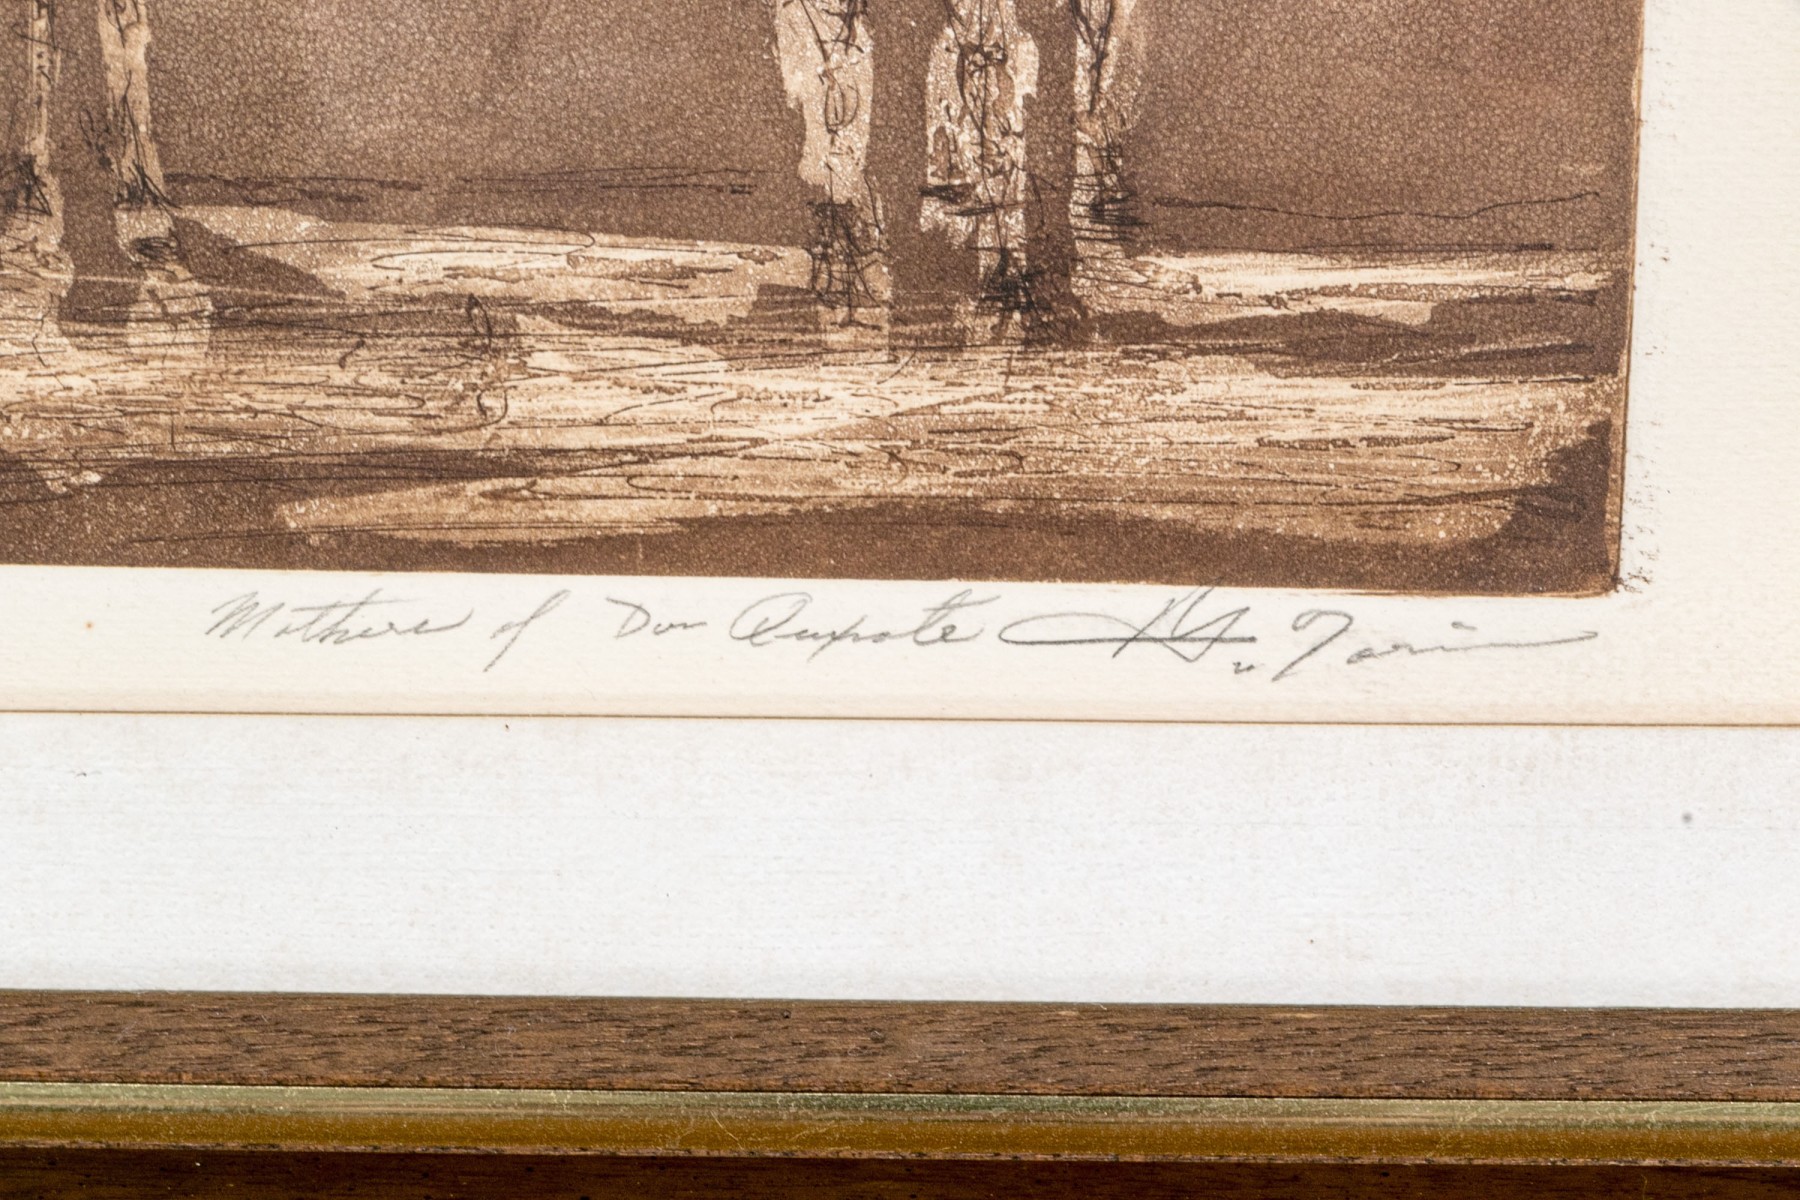 Mothers of Don Quixote